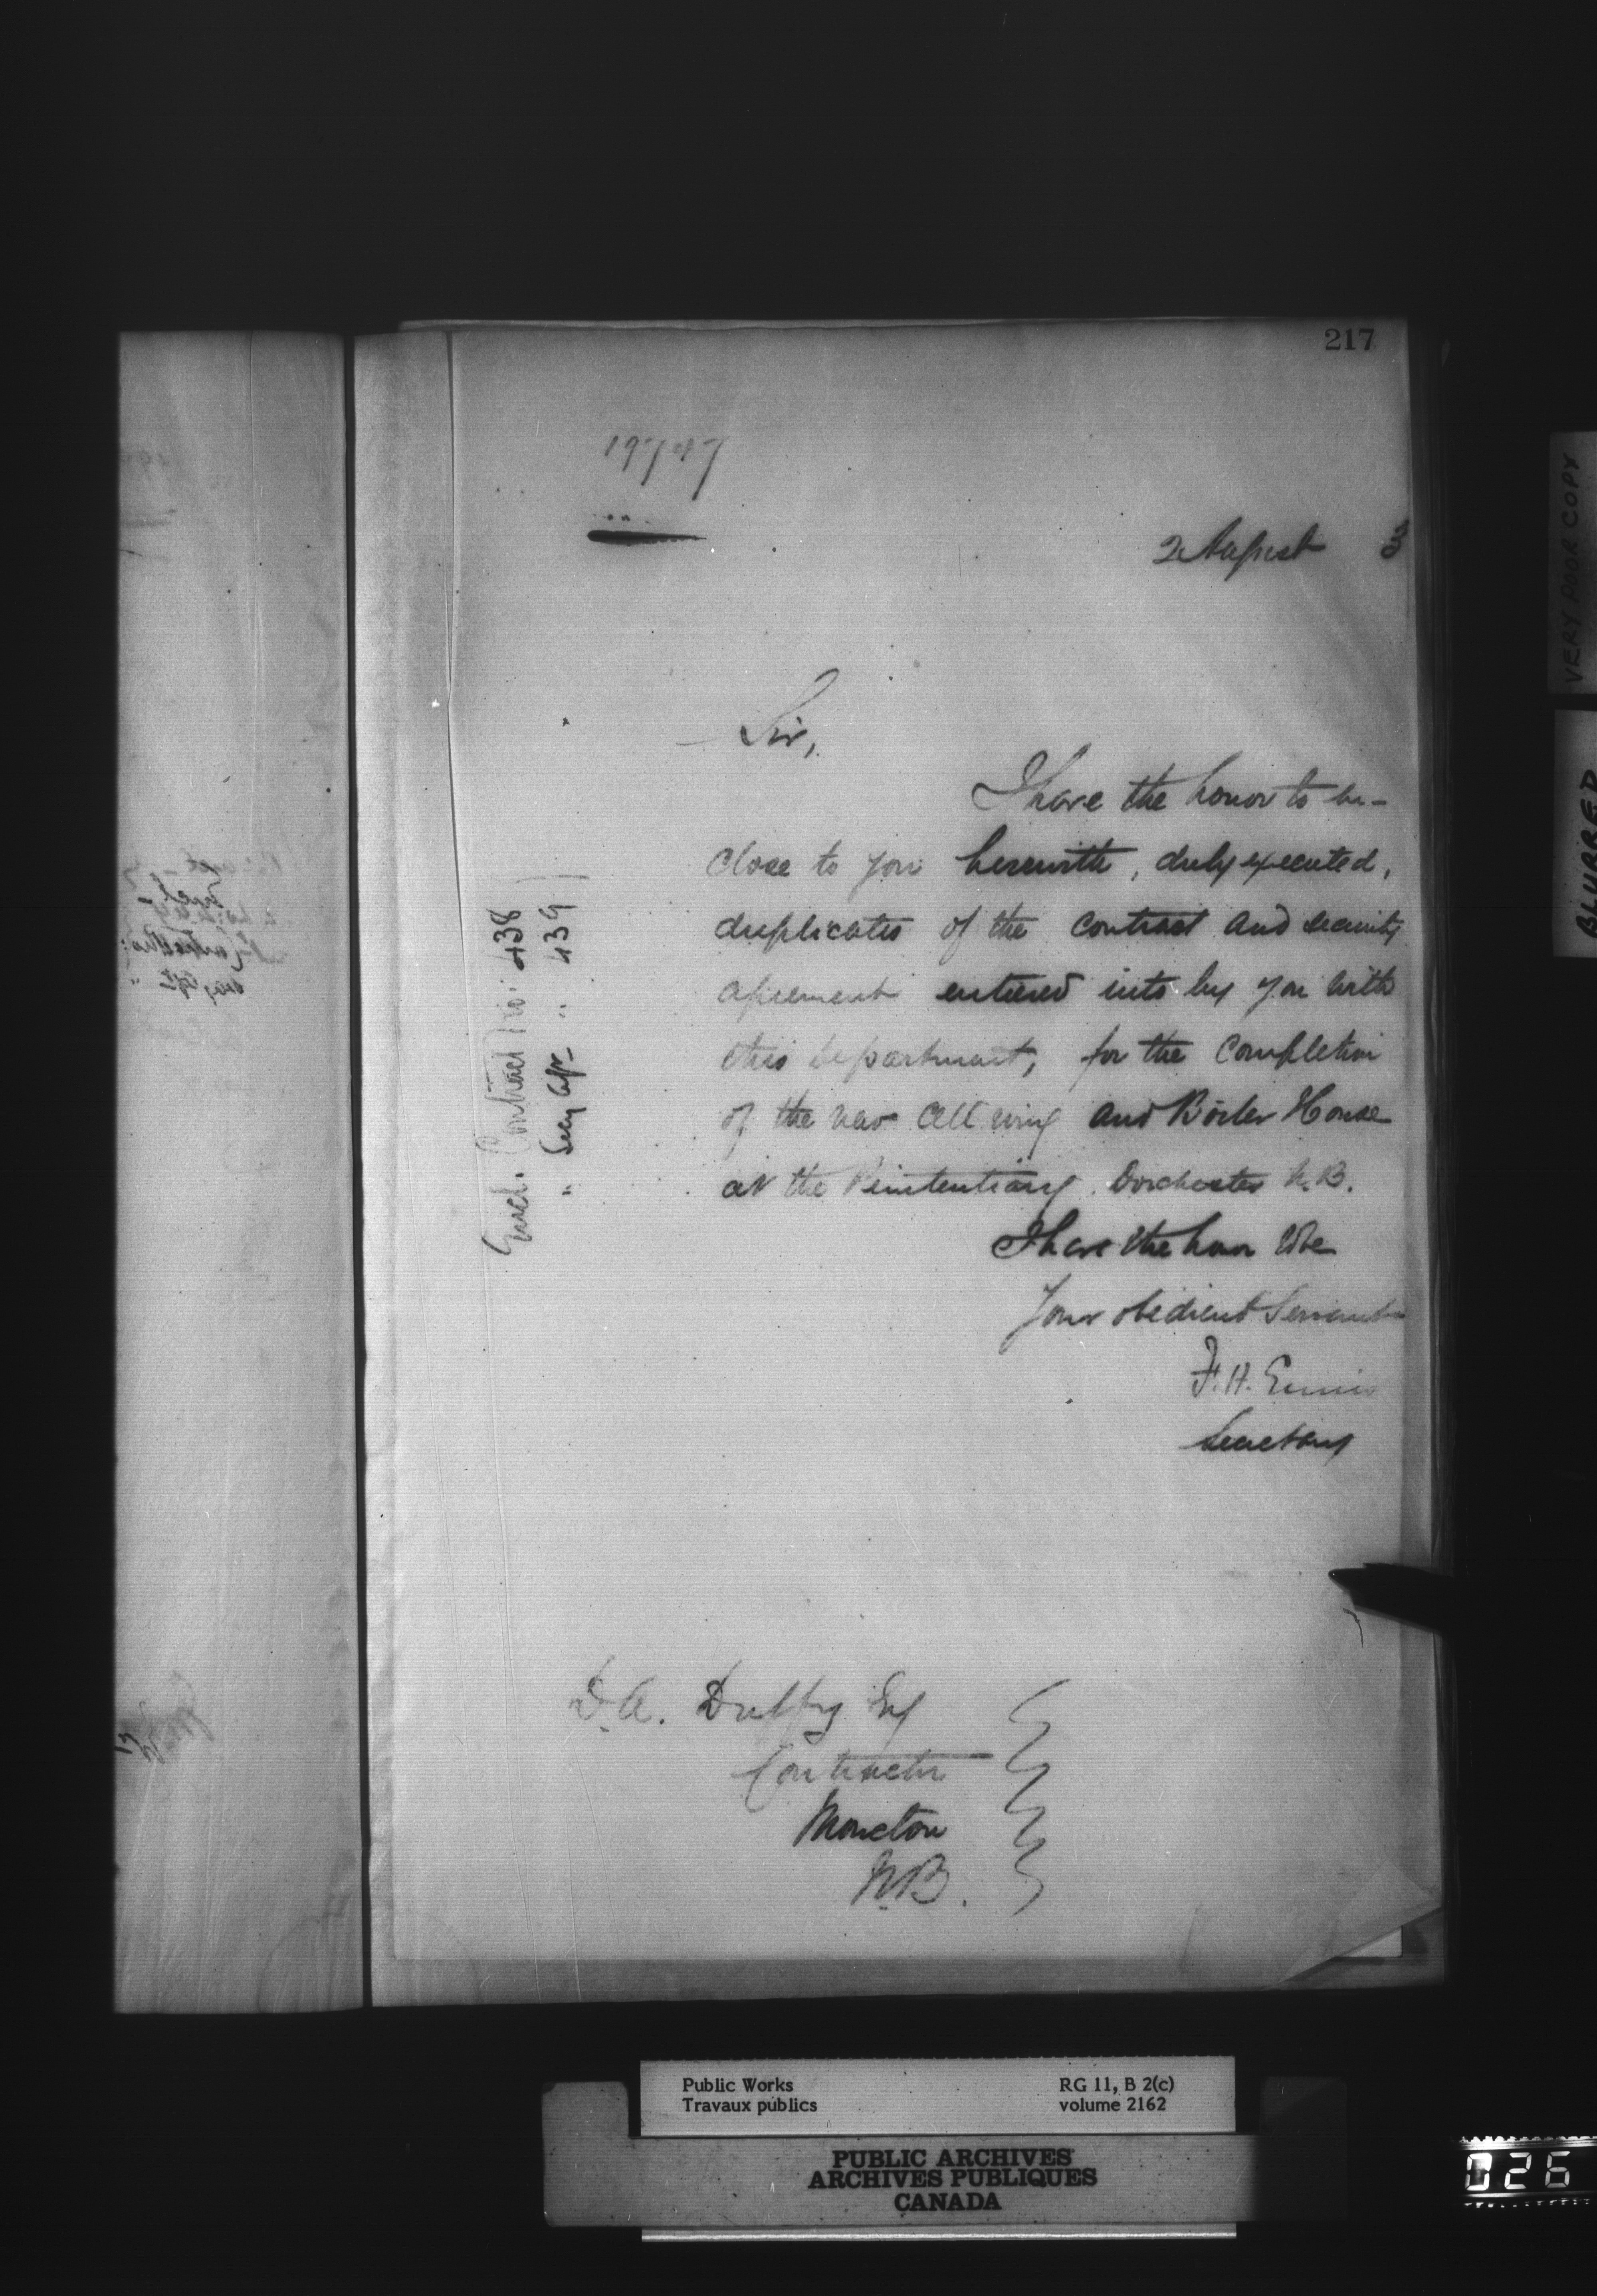 217
19747
2 August 3
Sir,
I have the honor to en-
close to you herewith, duly executed,
duplicates of the contract and security
agreement entered into by you with
this department, for the completion
of the new cell wing and Boiler House
at the Penitentiary. Dorchester N.B.
I have the honor to be
Your obedient Servant
F. H. Ennis
Secretary
Encl. Contract No: 438
" Secy Agt- " 439
D. A. Duffy Esq
Contractor
Moncton
N.B.
VERY POOR COPY
BLURRED
Public Works RG 11, B 2(c)
Travaux publics volume 2162
PUBLIC ARCHIVES
ARCHIVES PUBLIQUES
CANADA
026